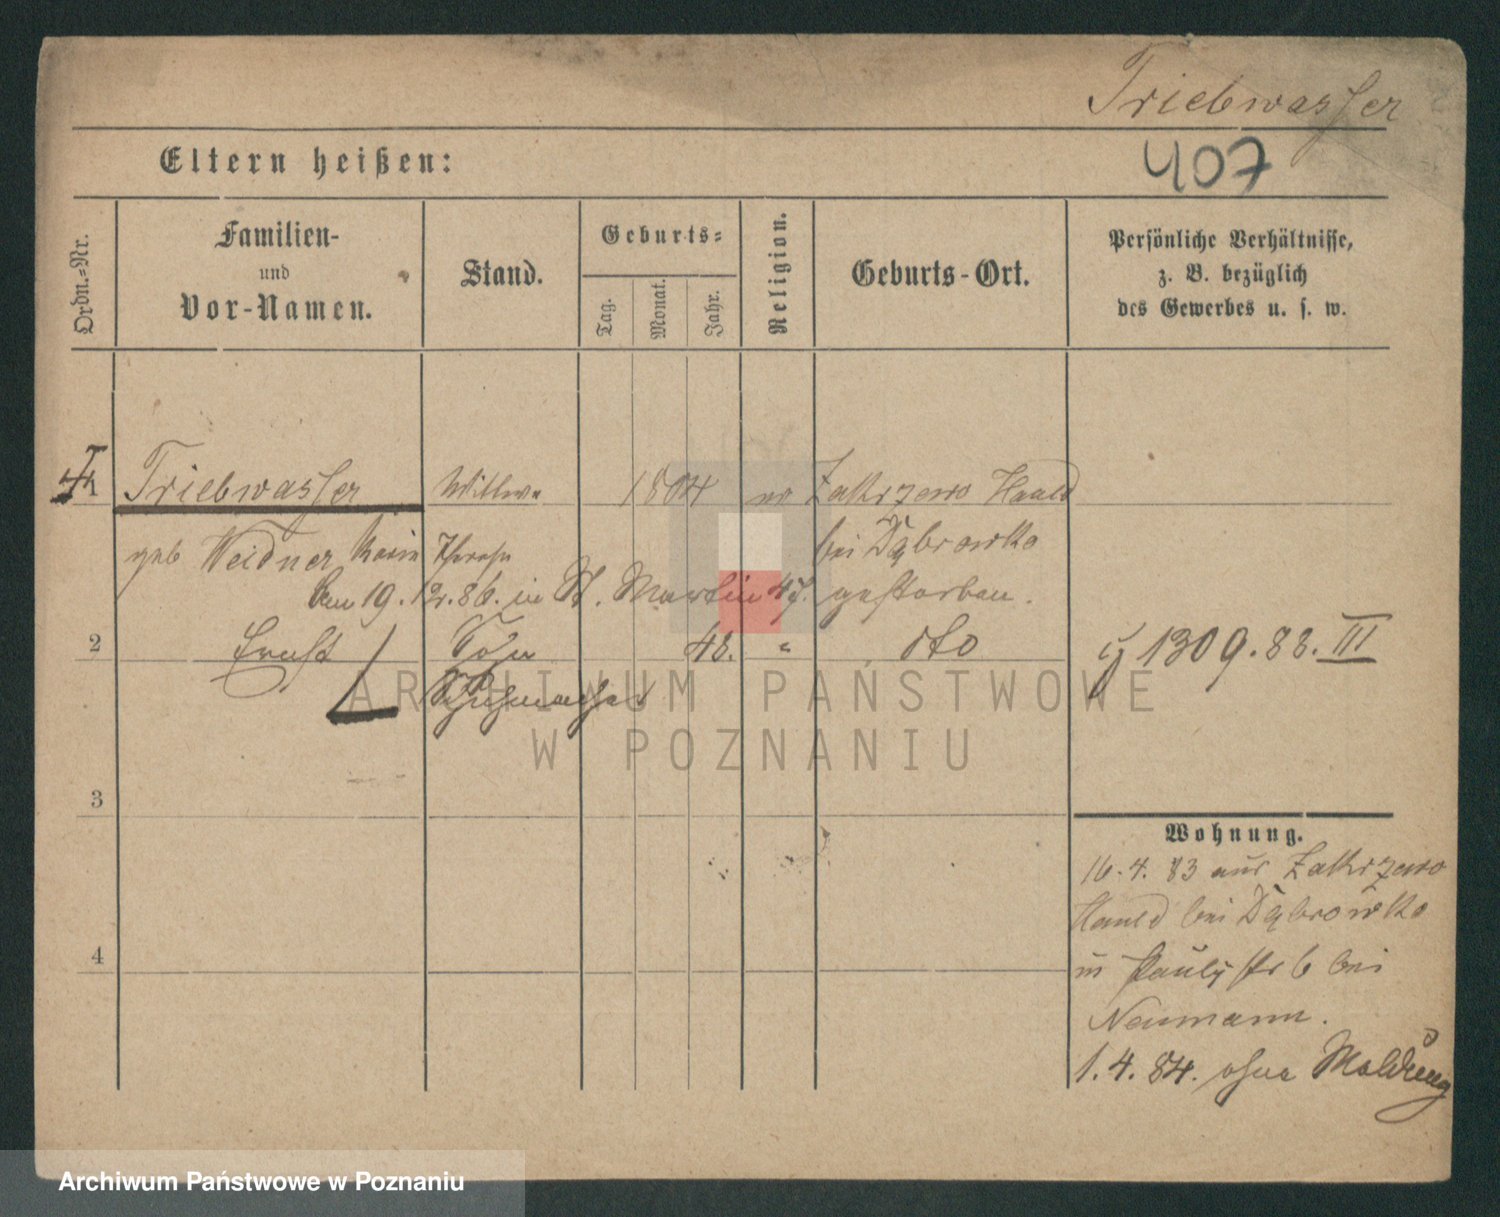 Triebwasser
Eltern heißen:
407
Ordn.-Nr.
Familien-
und
Vor-Namen.
Stand.
Geburts-
Tag.
Monat.
Jahr.
Religion.
Geburts-Ort.
Persönliche Verhältnisse,
z. B. bezüglich
des Gewerbes u. s. w.
1 Triebwasser Wittwe 1804 Zakrzewo Hauld
geb Weidner Therese bei Dąbrowka
am 19.12.86. in St. Martin 47. gestorben.
2 Ernst Sohn 48. " dto 1309.83. III
Schuhmacher
ARCHIWUM PAŃSTWOWE
W POZNANIU
3
Wohnung.
16.4.83 aus Zakrzewo
Hauld bei Dąbrowka
in Paulystr 6 bei
Neumann.
1.4.84. ohne Meldung
4
Archiwum Państwowe w Poznaniu